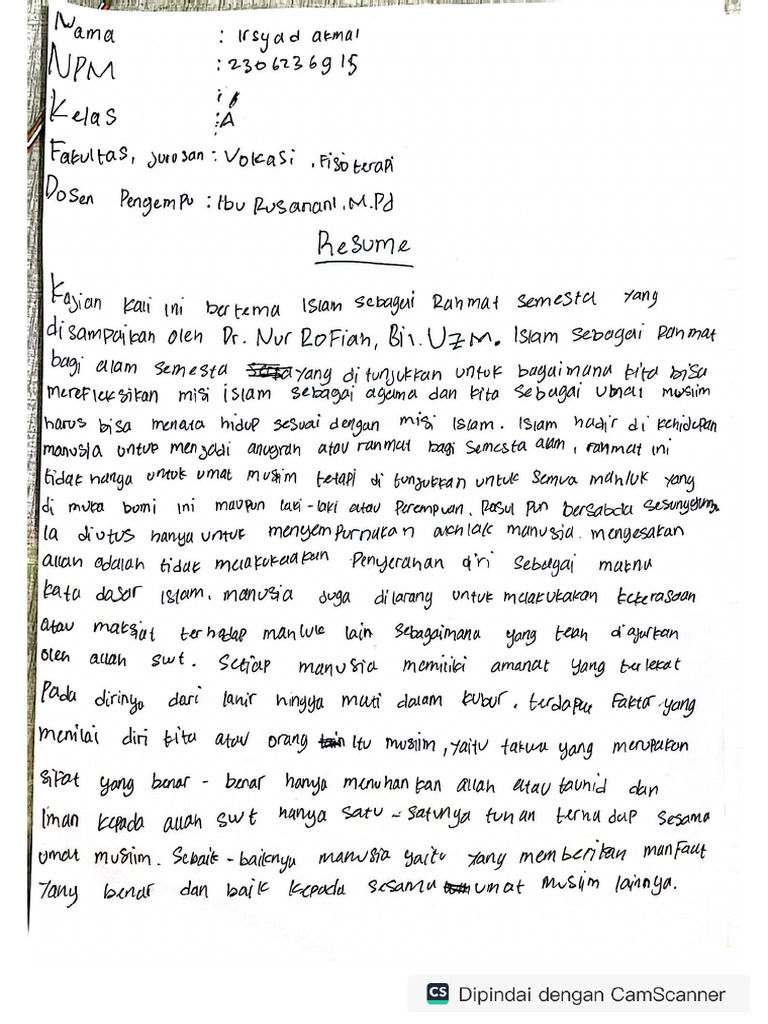 Nama : Irsyad akmal
NPM : 2306236915
Kelas : A
Fakultas, jurosan : Vokasi , Fisioterapi
Dosen Pengempu : Ibu Rusanani, M.Pd
Resume
Kajian Kali ini bertema Islam sebagai Rahmat semesta yang
disampaikan oleh Dr. Nur ROFiah, Bil. UZM. Islam sebagai Rahmat
bagi alam semesta yang ditunjukkan untuk bagaimana kita bisa
merefleksikan misi islam sebagai agama dan kita sebagai umat muslim
harus bisa menata hidup sesuai dengan misi Islam. Islam hadir di kehidupan
manusia untuk menjadi anugrah atau rahmat bagi Semesta alam, rahmat ini
tidak hanya untuk umat muslim tetapi di tunjukkan untuk semua mahluk yang
di muka bumi ini maupun laki-laki atau Perempuan. Rasul pun bersabda sesungguhnya
Ia diutus hanya untuk menyempurnakan akhlak manusia. mengesakan
allah adalah tidak Penyerahan diri Sebagai makna
kata dasar Islam. manusia juga dilarang untuk melakukakan kekerasaan
atau maksiat terhadap mahluk lain Sebagaimana yang teah diajurkan
oleh allah swt. Setiap manusia memiliki amanat yang terlekat
Pada dirinya dari lahir hingga mati dalam kubur. terdapat Faktor yang
menilai diri kita atau orang Itu muslim, yaitu takwa yang merupakan
sifat yang benar - benar hanya menuhankan allah atau tauhid dan
Iman kepada allah swt hanya satu - satunya tuhan terhadap sesama
umat muslim. Sebaik - baiknya manusia yaitu yang memberikan manfaat
yang benar dan baik kepada sesama umat muslim lainnya.
CS Dipindai dengan CamScanner